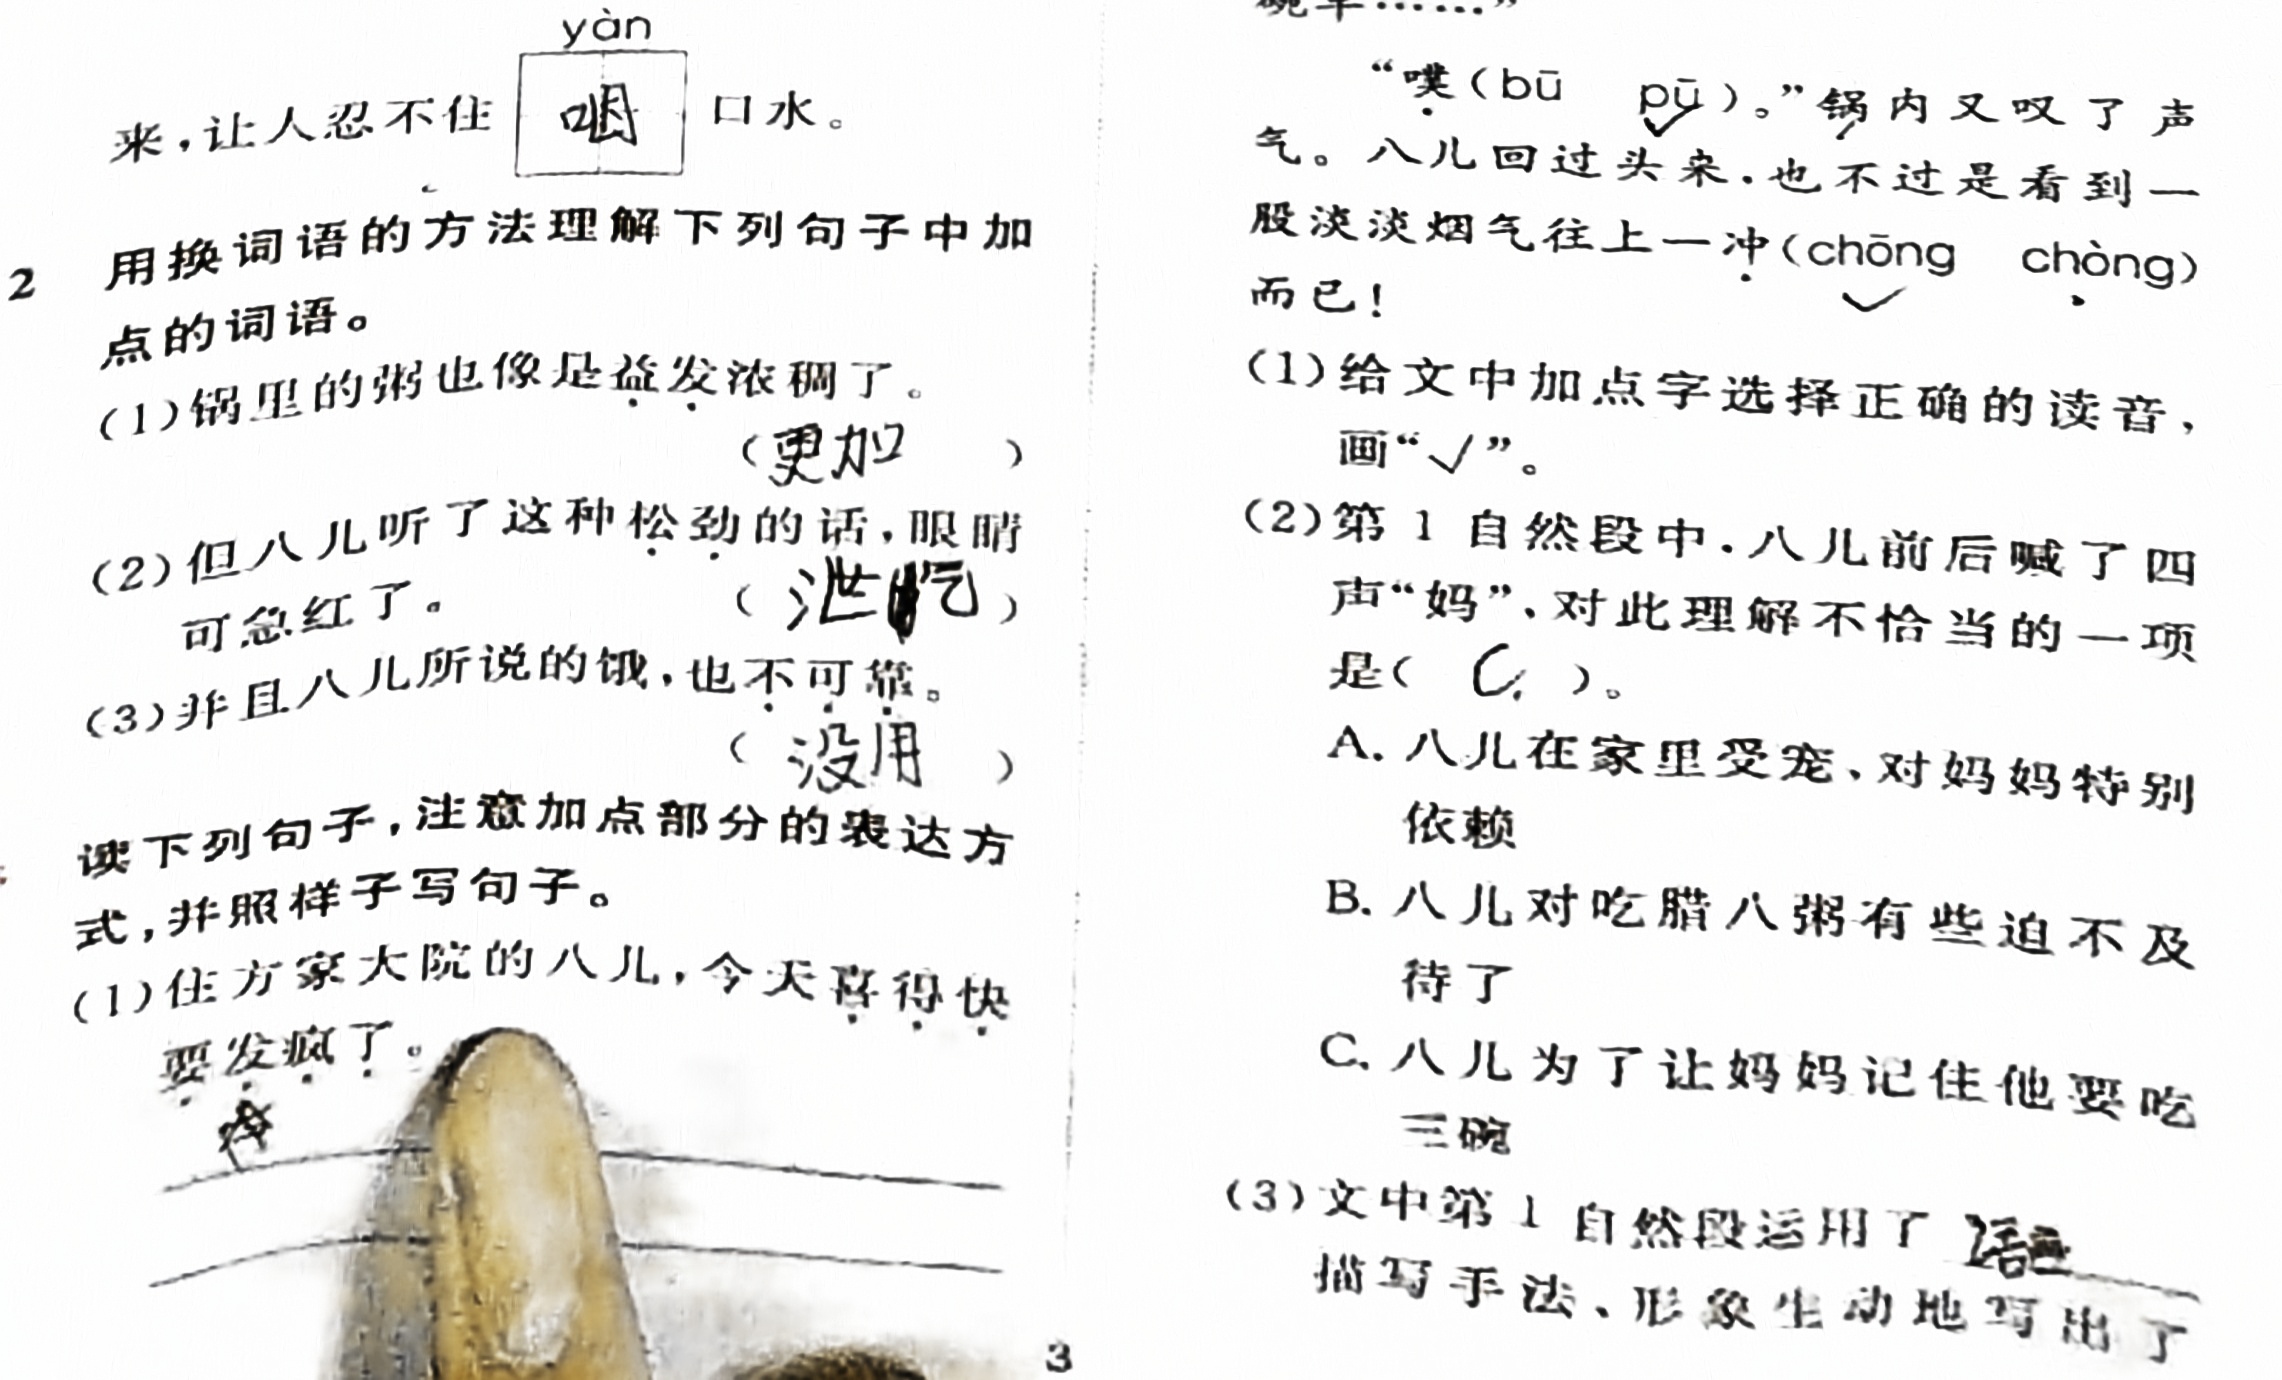 yàn
来，让人忍不住 咽 口水。
2 用换词语的方法理解下列句子中加
点的词语。
(1)锅里的粥也像是益发浓稠了。
(更加)
(2)但八儿听了这种松劲的话，眼睛
可急红了。(泄气)
(3)并且八儿所说的饿，也不可靠。
(没用)
读下列句子，注意加点部分的表达方
式，并照样子写句子。
(1)住方家大院的八儿，今天喜得快
要发疯了。
3
碗半……”
“噗(bū pū)。”锅内又叹了声
气。八儿回过头来，也不过是看到一
股淡淡烟气往上一冲(chōng chòng)
而已！
(1)给文中加点字选择正确的读音，
画“√”。
(2)第1自然段中，八儿前后喊了四
声“妈”，对此理解不恰当的一项
是( C. )。
A. 八儿在家里受宠，对妈妈特别
依赖
B. 八儿对吃腊八粥有些迫不及
待了
C. 八儿为了让妈妈记住他要吃
三碗
(3)文中第1自然段运用了 语
描写手法，形象生动地写出了